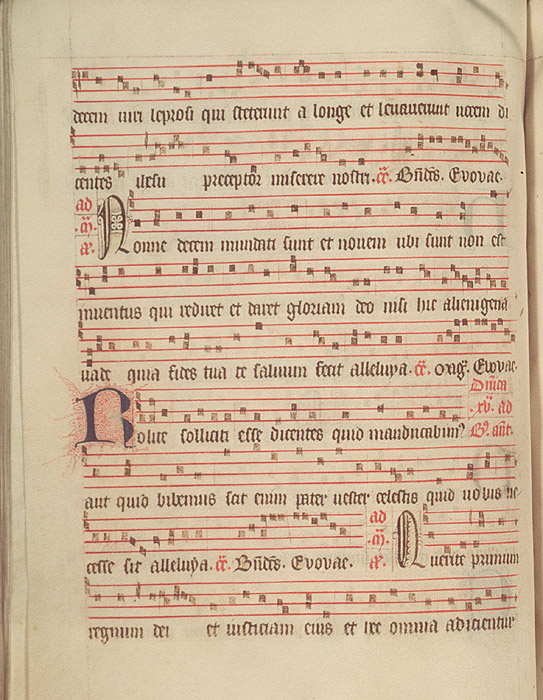 decem viri leprosi qui steterunt a longe et levaverunt vocem di
centes ihesu preceptor miserere nostri. Evovae.
ad
Nonne decem mundati sunt et novem ubi sunt non est
inventus qui rediret et daret gloriam deo nisi hic alienigena
vade quia fides tua te salvum fecit alleluya. Evovae.
Dnica
.xv. ad
Nolite solliciti esse dicentes quid manducabim
aut quid bibemus scit enim pater vester celestis quid vobis ne
cesse sit alleluya. Evovae.
ad
Querite primum
regnum dei et iusticiam eius et hec omnia adicientur